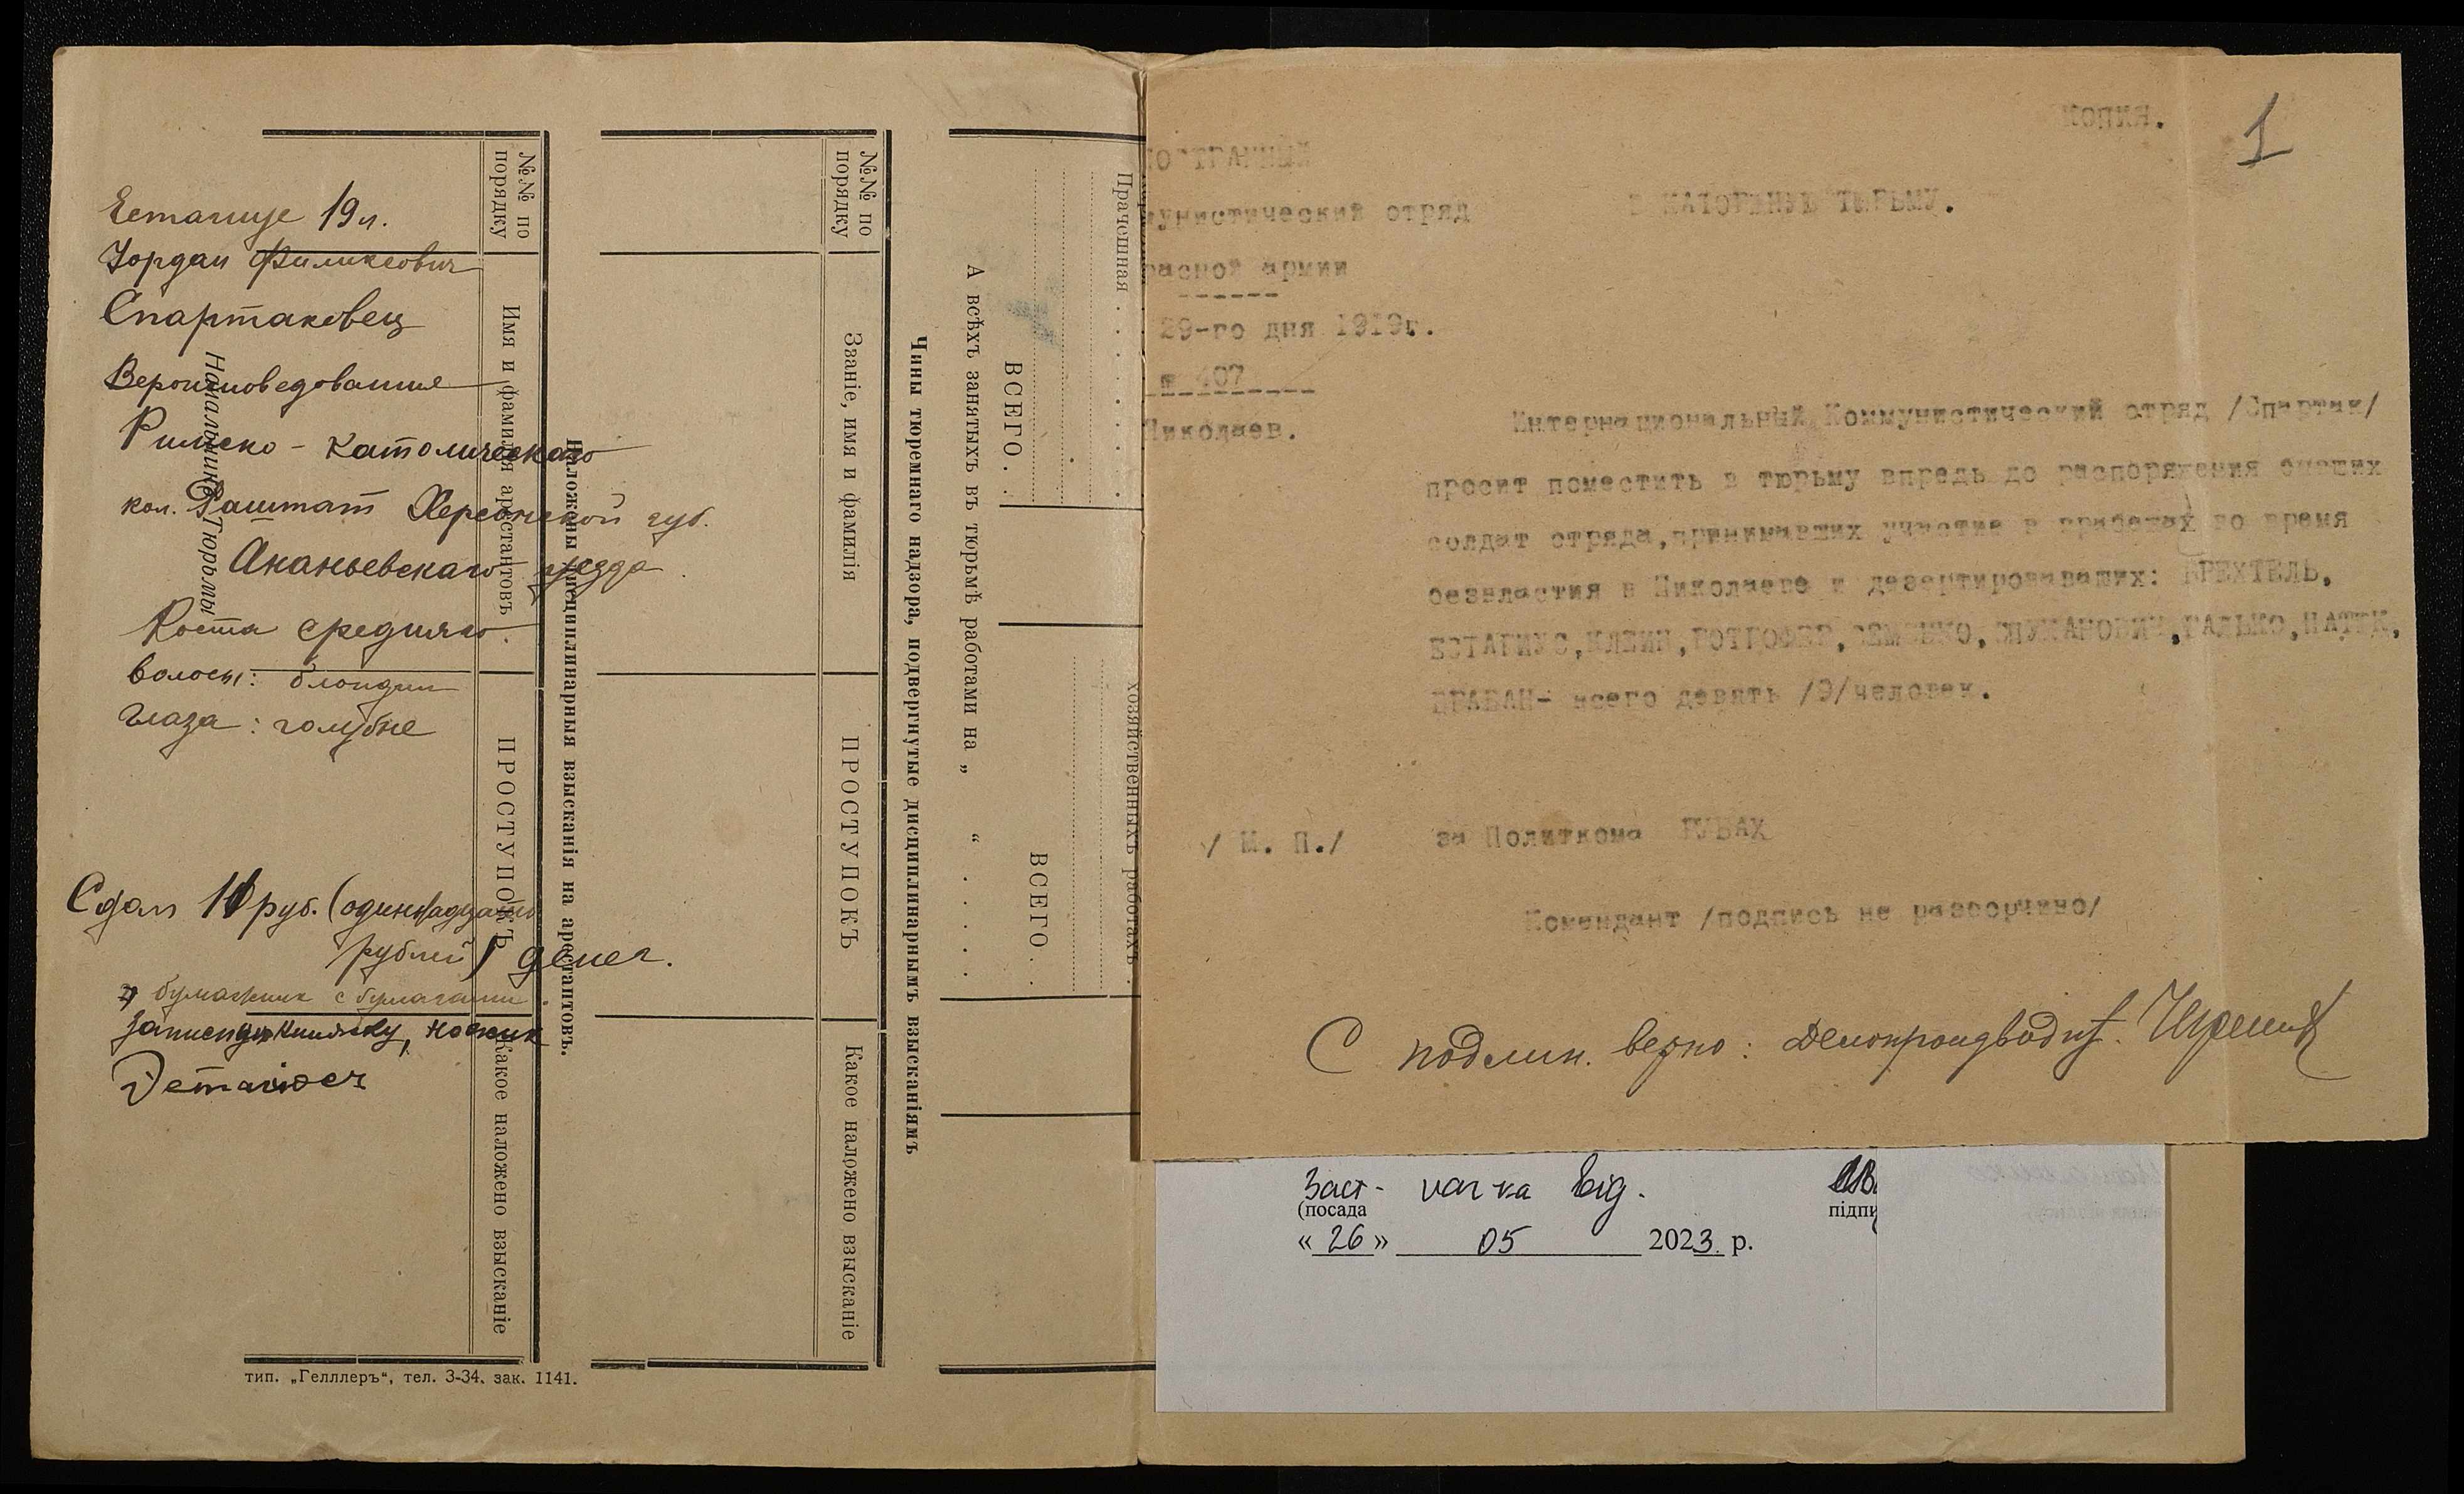 19 л.
Спартаковец
Вероисповедование
Римско - Католическаго
кол. Раштат Херсонской губ.
Ананьевскаго уезда
Роста средняго.
волосы: блондин
глаза: голубые
Сдал 11 руб. (одинадцать
рублей) денег.
бумажник с бумагами.
записную книжку, ножик
Начальникъ Тюрьмы
№№ по порядку
Имя и фамилія арестантовъ
ПРОСТУПОКЪ
Какое наложено взысканіе
Наложены дисциплинарныя взысканія на арестантовъ.
№№ по порядку
Званіе, имя и фамилія
ПРОСТУПОКЪ
Какое наложено взысканіе
Чины тюремнаго надзора, подвергнутые дисциплинарнымъ взысканіямъ
А всѣхъ занятыхъ въ тюрьмѣ работами на „ “ . . . .
ВСЕГО . .
ВСЕГО . .
Прачешная . . . . . . . .
хозяйственныхъ работахъ .
тип. „Гелллеръ“, тел. 3-34. зак. 1141.
Копия.
1
мунистический отряд
В КАТОРЖНУЮ ТЮРЬМУ.
расной армии
29-го дня 1919г.
407
Николаев.
Интернациональный Коммунистический отряд /Спартак/
просит поместить в тюрьму впредь до распоряжения бывших
солдат отряда, принимавших участие в грабежах во время
безвластия в Николаеве и дезертировавших: БРЕХТЕЛЬ,
ЕСТАГИУС, КЛЕИН, СЕМЕНКО,
всего девять /9/человек.
/ М. П./ за Политкома
Комендант /подпись не разборчиво/
С подлин. верно: Делопроизводит.
Заст- нач-ка від.
(посада
підпи
« 26 » 05 2023. р.